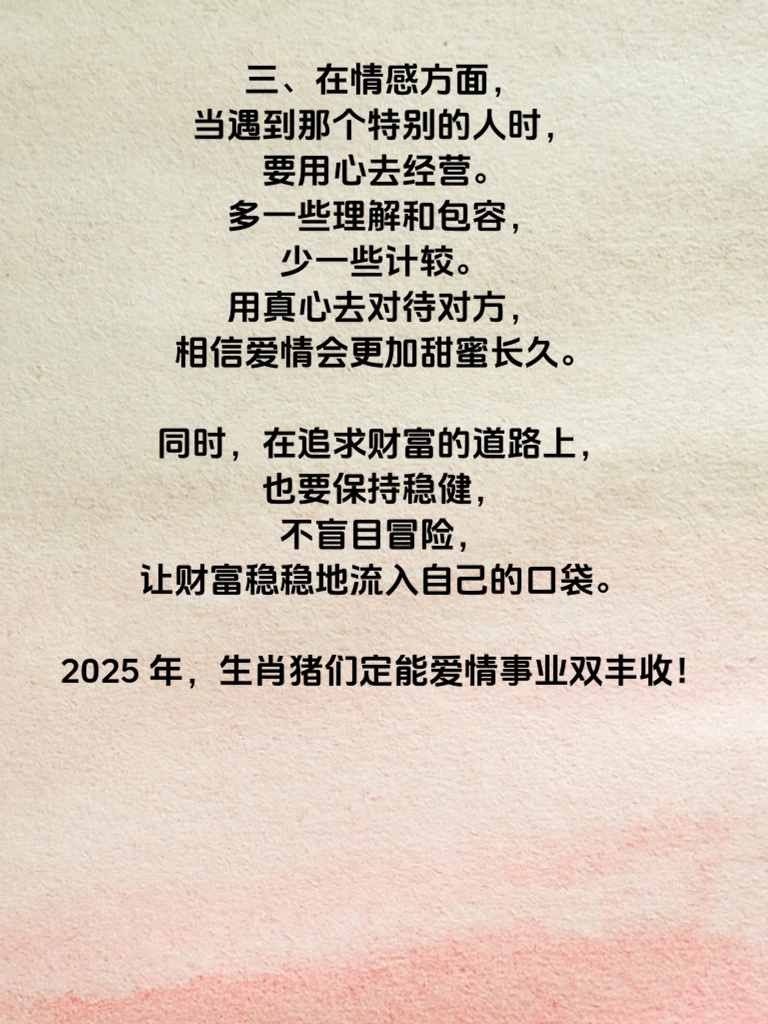 三、在情感方面，
当遇到那个特别的人时，
要用心去经营。
多一些理解和包容，
少一些计较。
用真心去对待对方，
相信爱情会更加甜蜜长久。
同时，在追求财富的道路上，
也要保持稳健，
不盲目冒险，
让财富稳稳地流入自己的口袋。
2025 年，生肖猪们定能爱情事业双丰收！